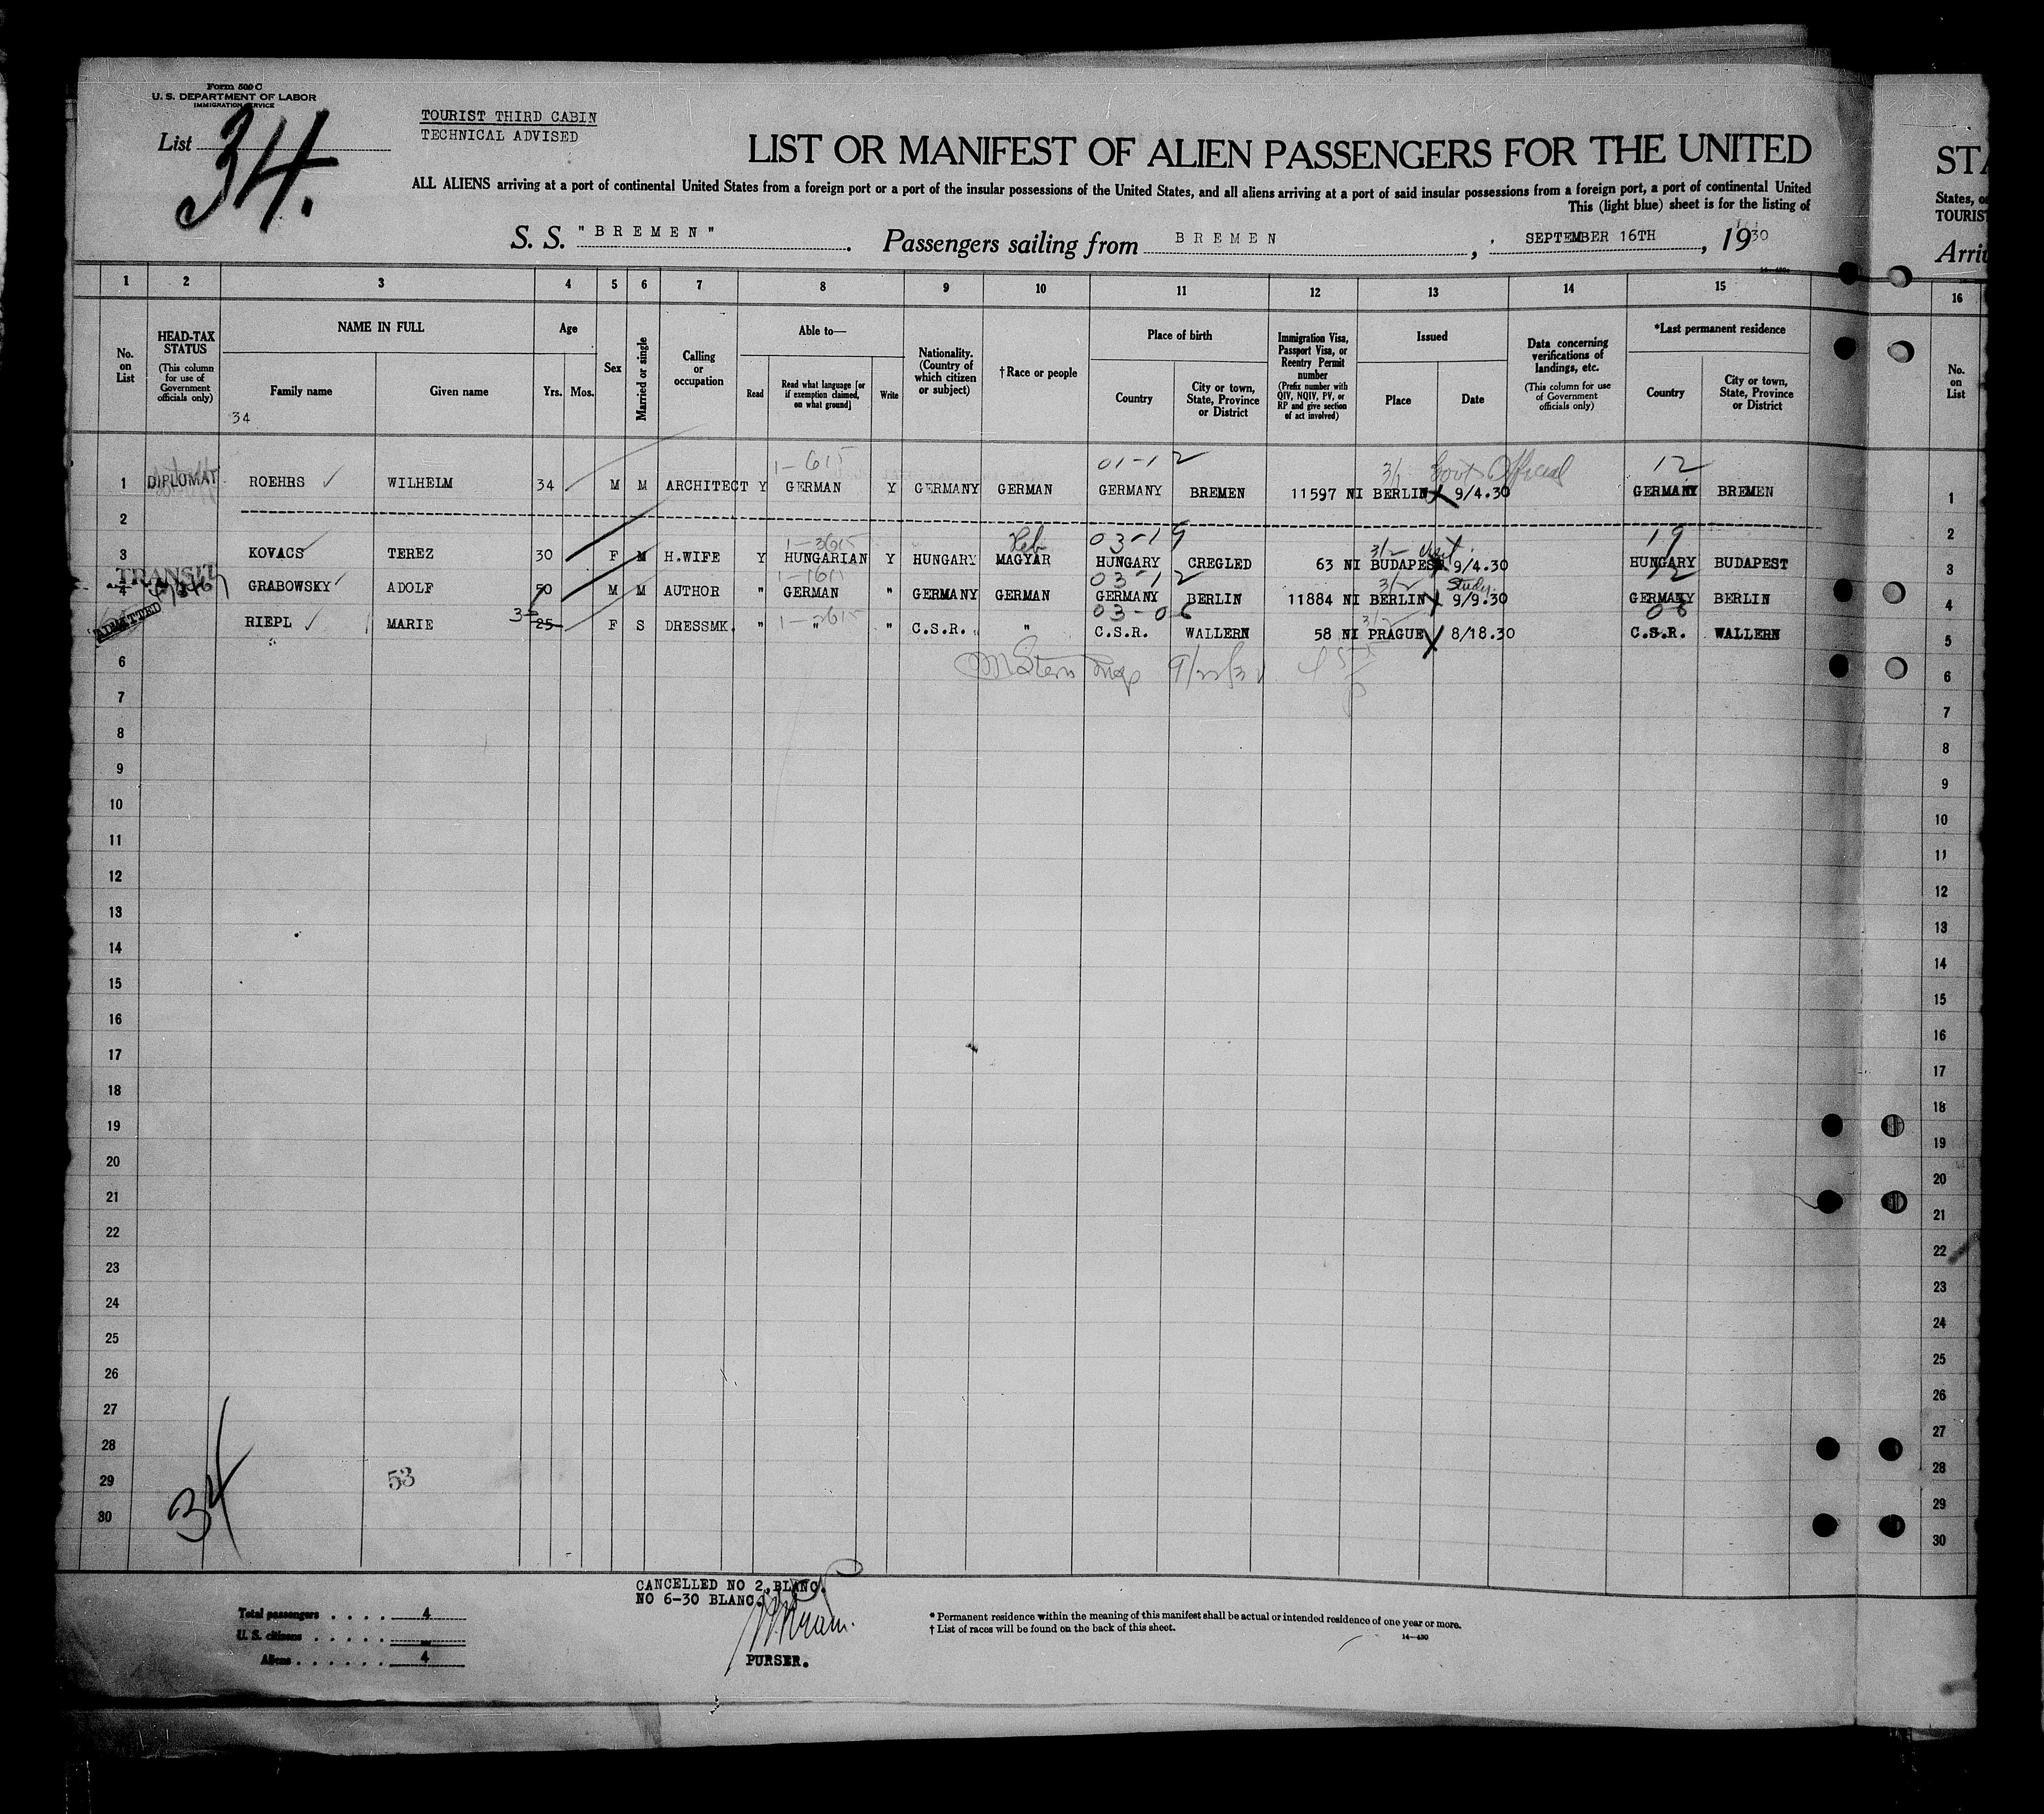 Form 500 C
U. S. DEPARTMENT OF LABOR
IMMIGRATION SERVICE
List 34.
TOURIST THIRD CABIN
TECHNICAL ADVISED
LIST OR MANIFEST OF ALIEN PASSENGERS FOR THE UNITED
ALL ALIENS arriving at a port of continental United States from a foreign port or a port of the insular possessions of the United States, and all aliens arriving at a port of said insular possessions from a foreign port, a port of continental United
This (light blue) sheet is for the listing of
S. S. "BREMEN". Passengers sailing from BREMEN, SEPTEMBER 16TH, 1930
STA
States, o
TOURIST
Arri
1 2 3 4 5 6 7 8 9 10 11 12 13 14 15 16
No. on List
HEAD-TAX STATUS (This column for use of Government officials only)
NAME IN FULL
Family name
Given name
34
Age
Yrs. Mos.
Sex
Married or single
Calling or occupation
Able to—
Read
Read what language [or if exemption claimed, on what ground]
Write
Nationality. (Country of which citizen or subject)
†Race or people
Place of birth
Country
City or town, State, Province or District
Immigration Visa, Passport Visa, or Reentry Permit number (Prefix number with QIV, NQIV, PV, or RP and give section of act involved)
Issued
Place
Date
Data concerning verifications of landings, etc. (This column for use of Government officials only)
*Last permanent residence
Country
City or town, State, Province or District
No. on List
1-615 01-12 3/1 Govt Official 12
1 DIPLOMAT ROEHRS WILHELM 34 M M ARCHITECT Y GERMAN Y GERMANY GERMAN GERMANY BREMEN 11597 NI BERLIN 9/4.30 GERMANY BREMEN 1
2 2
1-3615 Heb 03-19 3/2 Visit. 19
3 KOVACS TEREZ 30 F M H.WIFE Y HUNGARIAN Y HUNGARY MAGYAR HUNGARY CREGLED 63 NI BUDAPEST 9/4.30 HUNGARY BUDAPEST 3
TRANSIT 1-1611 03-12 3/2 Study. 12
4 GRABOWSKY ADOLF 50 M M AUTHOR " GERMAN " GERMANY GERMAN GERMANY BERLIN 11884 NI BERLIN 9/9.30 GERMANY BERLIN 4
ADMITTED 35 1-2615 03-06 3/2 06
RIEPL MARIE 25 F S DRESSMK. " " " C.S.R. " C.S.R. WALLERN 58 NI PRAGUE 8/18.30 C.S.R. WALLERN 5
6 MStern Insp 6
7 7
8 8
9 9
10 10
11 11
12 12
13 13
14 14
15 15
16 16
17 17
18 18
19 19
20 20
21 21
22 22
23 23
24 24
25 25
26 26
27 27
28 28
29 53 29
30 34 30
CANCELLED NO 2, BLANC.
NO 6-30 BLANC.
Total passengers . . . . 4
U. S. citizens . . . . .
Aliens . . . . . . 4
PURSER.
* Permanent residence within the meaning of this manifest shall be actual or intended residence of one year or more.
† List of races will be found on the back of this sheet.
14—430